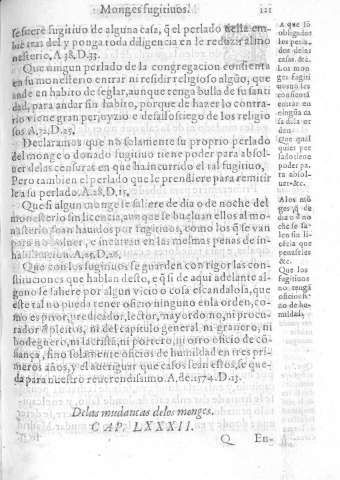 Monges fugitiuos. 121
se fuere fugitiuo de alguna casa, q̃ el perlado
bie tras del y ponga toda diligencia en le reduzir al mo
nesterio, A.38.D.33.
Que ningun perlado de la congregacion consienta
en su monesterio entrar ni residir religioso algũo, que
ande en habito de seglar, aunque tenga bulla de su santi
dad, para andar sin habito, porque de hazer lo contra-
rio viene gran perjuyzio e desassosiego de los religio
sos A.21.D.25.
Declaramos que no solamente su proprio perlado
del monge o donado fugitiuo tiene poder para absol-
uer delas censuras en que ha incurrido el tal fugitiuo,
Pero tambien el perlado que le prendiere para remitir
le a su perlado. A.28.D.15.
Que si algun monge se saliere de dia o de noche del
monesterio sin licencia, aunque se bueluan ellos al mo-
nasterio sean hauidos por fugitiuos, como los q̃ se van
para no boluer, e incurran en las mesmas penas de in-
habilitacion. A.25.D.26.
Que con los fugitiuos se guarden con rigor las con-
stituciones que hablan desto, e q̃ si de aqui adelante al-
guno se saliere por algun vicio o cosa escandalosa, que
este tal no pueda tener oficio ninguno en la orden, co-
mo es prior, predicador, lector, mayordomo, ni procu-
rador de pleitos, ni del capitulo general ni granero, ni
bodeguero, ni sacrista, ni portero, ni otro oficio de cõ-
fiança, sino solamente oficios de humildad en tres pri-
meros años, y el aueriguar que casos sean estos, se que-
da para nuestro reuerendissimo. A. de. 1574. D. 13.
Delas mudancas delos monges.
CAP. LXXXII.
Q En-
A que sõ
obligados
los perla-
dos delas
casas. &c.
Los mon
ges fugiti
uos no les
consientã
entrar en
ningũa ca
sa dela or
den.
Que qual
quier per
lado tiene
poder pa-
ra absol-
uer &c.
A los mõ
ges q̃ de
dia o d no
che se sa-
len sin li-
cẽcia que
penas teis
&c.
Que los
fugitiuos
no tengã
oficios si
no de hu-
mildad,